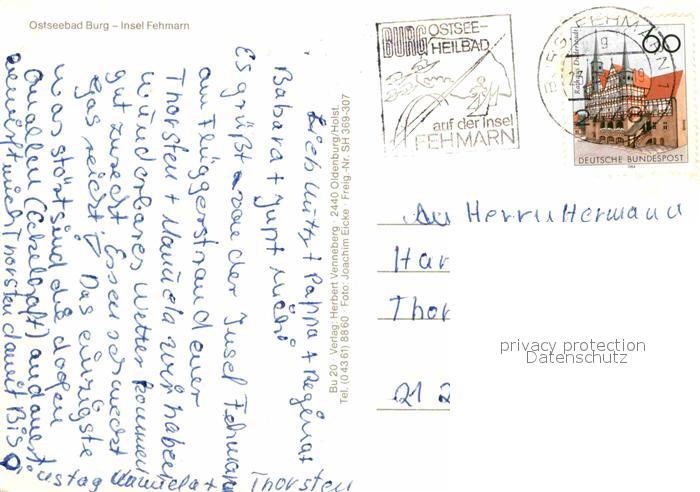 Ostseebad Burg – Insel Fehmarn
BURG OSTSEE-
HEILBAD
auf der Insel
FEHMARN
60
DEUTSCHE BUNDESPOST
1984
Bu 20 · Verlag: Herbert Venneberg · 2440 Oldenburg/Holst.
Tel. (0 43 61) 88 60 · Foto: Joachim Eicke · Freig.-Nr. SH 369-307
Mutti + Pappa + Regina
Babara + Jupi
Es grüßt von der Insel Fehmarn
am Flüggerstrand euer
Thorsten + Manuela wir haben
wunderbares Wetter kommen
gut zurecht Essen schmeckt
Gas reicht Das einzigste
was stört sind die doofen
Quallen (Eckelhaft) andauernt
bewirft mich Thorsten damit Bis
Manuela + Thorsten
An Herrn Hermann
Har
Thor
21 2
privacy protection
Datenschutz